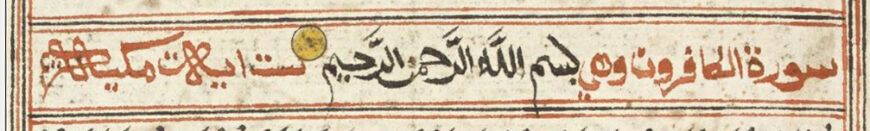 سورة الكافرون وهي بسم الله الرحمن الرحيم ست ايات مكية